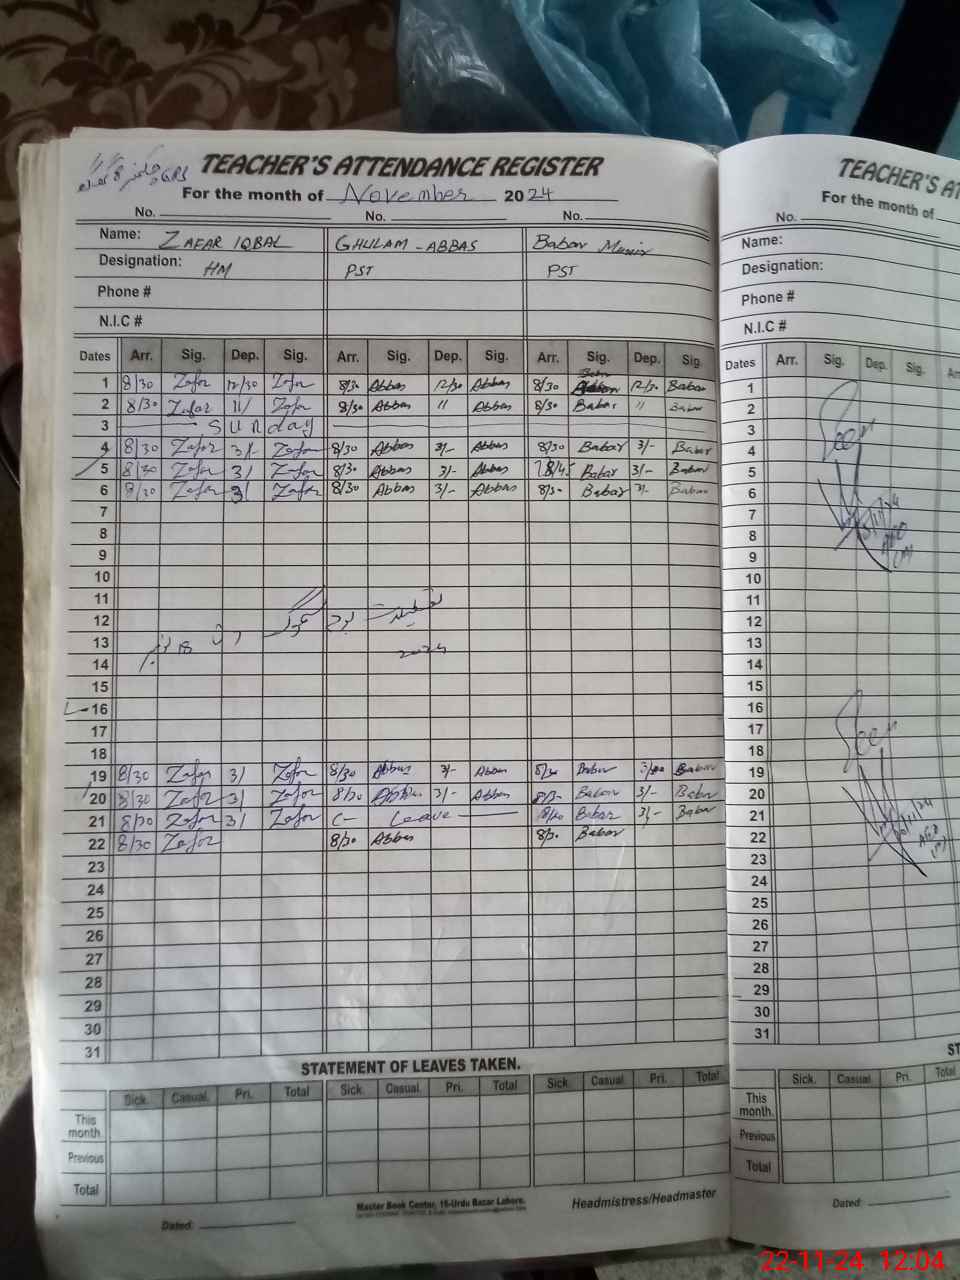 TEACHER'S ATTENDANCE REGISTER
For the month of November 2024
No. No. No.
Name: ZAFAR IQBAL GHULAM-ABBAS Babar Munir
Designation: HM PST PST
Phone #
N.I.C #
Dates Arr. Sig. Dep. Sig. Arr. Sig. Dep. Sig. Arr. Sig. Dep. Sig.
1 8/30 Zafar 12/30 Zafar 8/30 Abbas 12/30 Abbas 8/30 Babar 12/30 Babar
2 8/30 Zafar 11/ Zafar 8/30 Abbas 11 Abbas 8/30 Babar 11 Babar
3 Sunday
4 8/30 Zafar 3/- Zafar 8/30 Abbas 3/- Abbas 8/30 Babar 3/- Babar
5 8/30 Zafar 3/ Zafar 8/30 Abbas 3/- Abbas Babar 3/- Babar
6 8/30 Zafar 3/ Zafar 8/30 Abbas 3/- Abbas 8/30 Babar 3/- Babar
7
8
9
10
11
12
13
14
2024
15
16
17
18
19 8/30 Zafar 3/ Zafar 8/30 Abbas 3/- Abbas 8/30 Babar Babar
20 8/30 Zafar 3/ Zafar 8/30 Abbas 3/- Abbas 8/30 Babar 3/- Babar
21 8/30 Zafar 3/ Zafar C- Leave 8/30 Babar 3/- Babar
22 8/30 Zafar 8/30 Abbas 8/30 Babar
23
24
25
26
27
28
29
30
31
STATEMENT OF LEAVES TAKEN.
Sick. Casual. Pri. Total Sick. Casual. Pri. Total Sick. Casual. Pri. Total
This month.
Previous
Total
Master Book Center, 16-Urdu Bazar Lahore.
Headmistress/Headmaster
Dated:
TEACHER'S A
For the month of
No.
Name:
Designation:
Phone #
N.I.C #
Dates Arr. Sig. Dep. Sig.
1
2
3
4
5
6
7
8
9
10
11
12
13
14
15
16
17
18
19
20
21
22
23
24
25
26
27
28
29
30
31
Seen
AEO
Seen
AEO
ST
Sick. Casual. Pri. Total
This month.
Previous
Total
Dated:
22-11-24 12:04